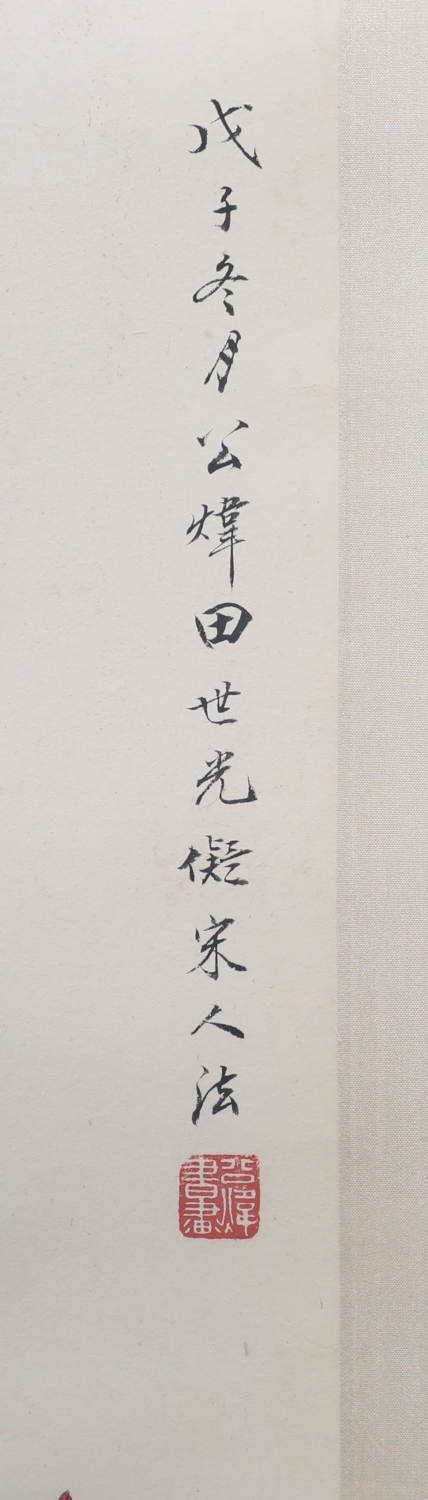 戊子冬月公煒田世光儗宋人法
公煒書畫